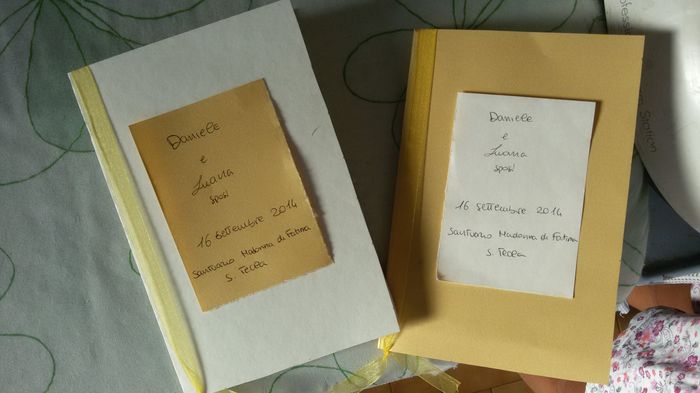 Daniele
e
Luana
sposi
16 settembre 2014
Santuario Madonna di Fatima
S. Tecla
Daniele
e
Luana
sposi
16 settembre 2014
Santuario Madonna di Fatima
S. Tecla
Station